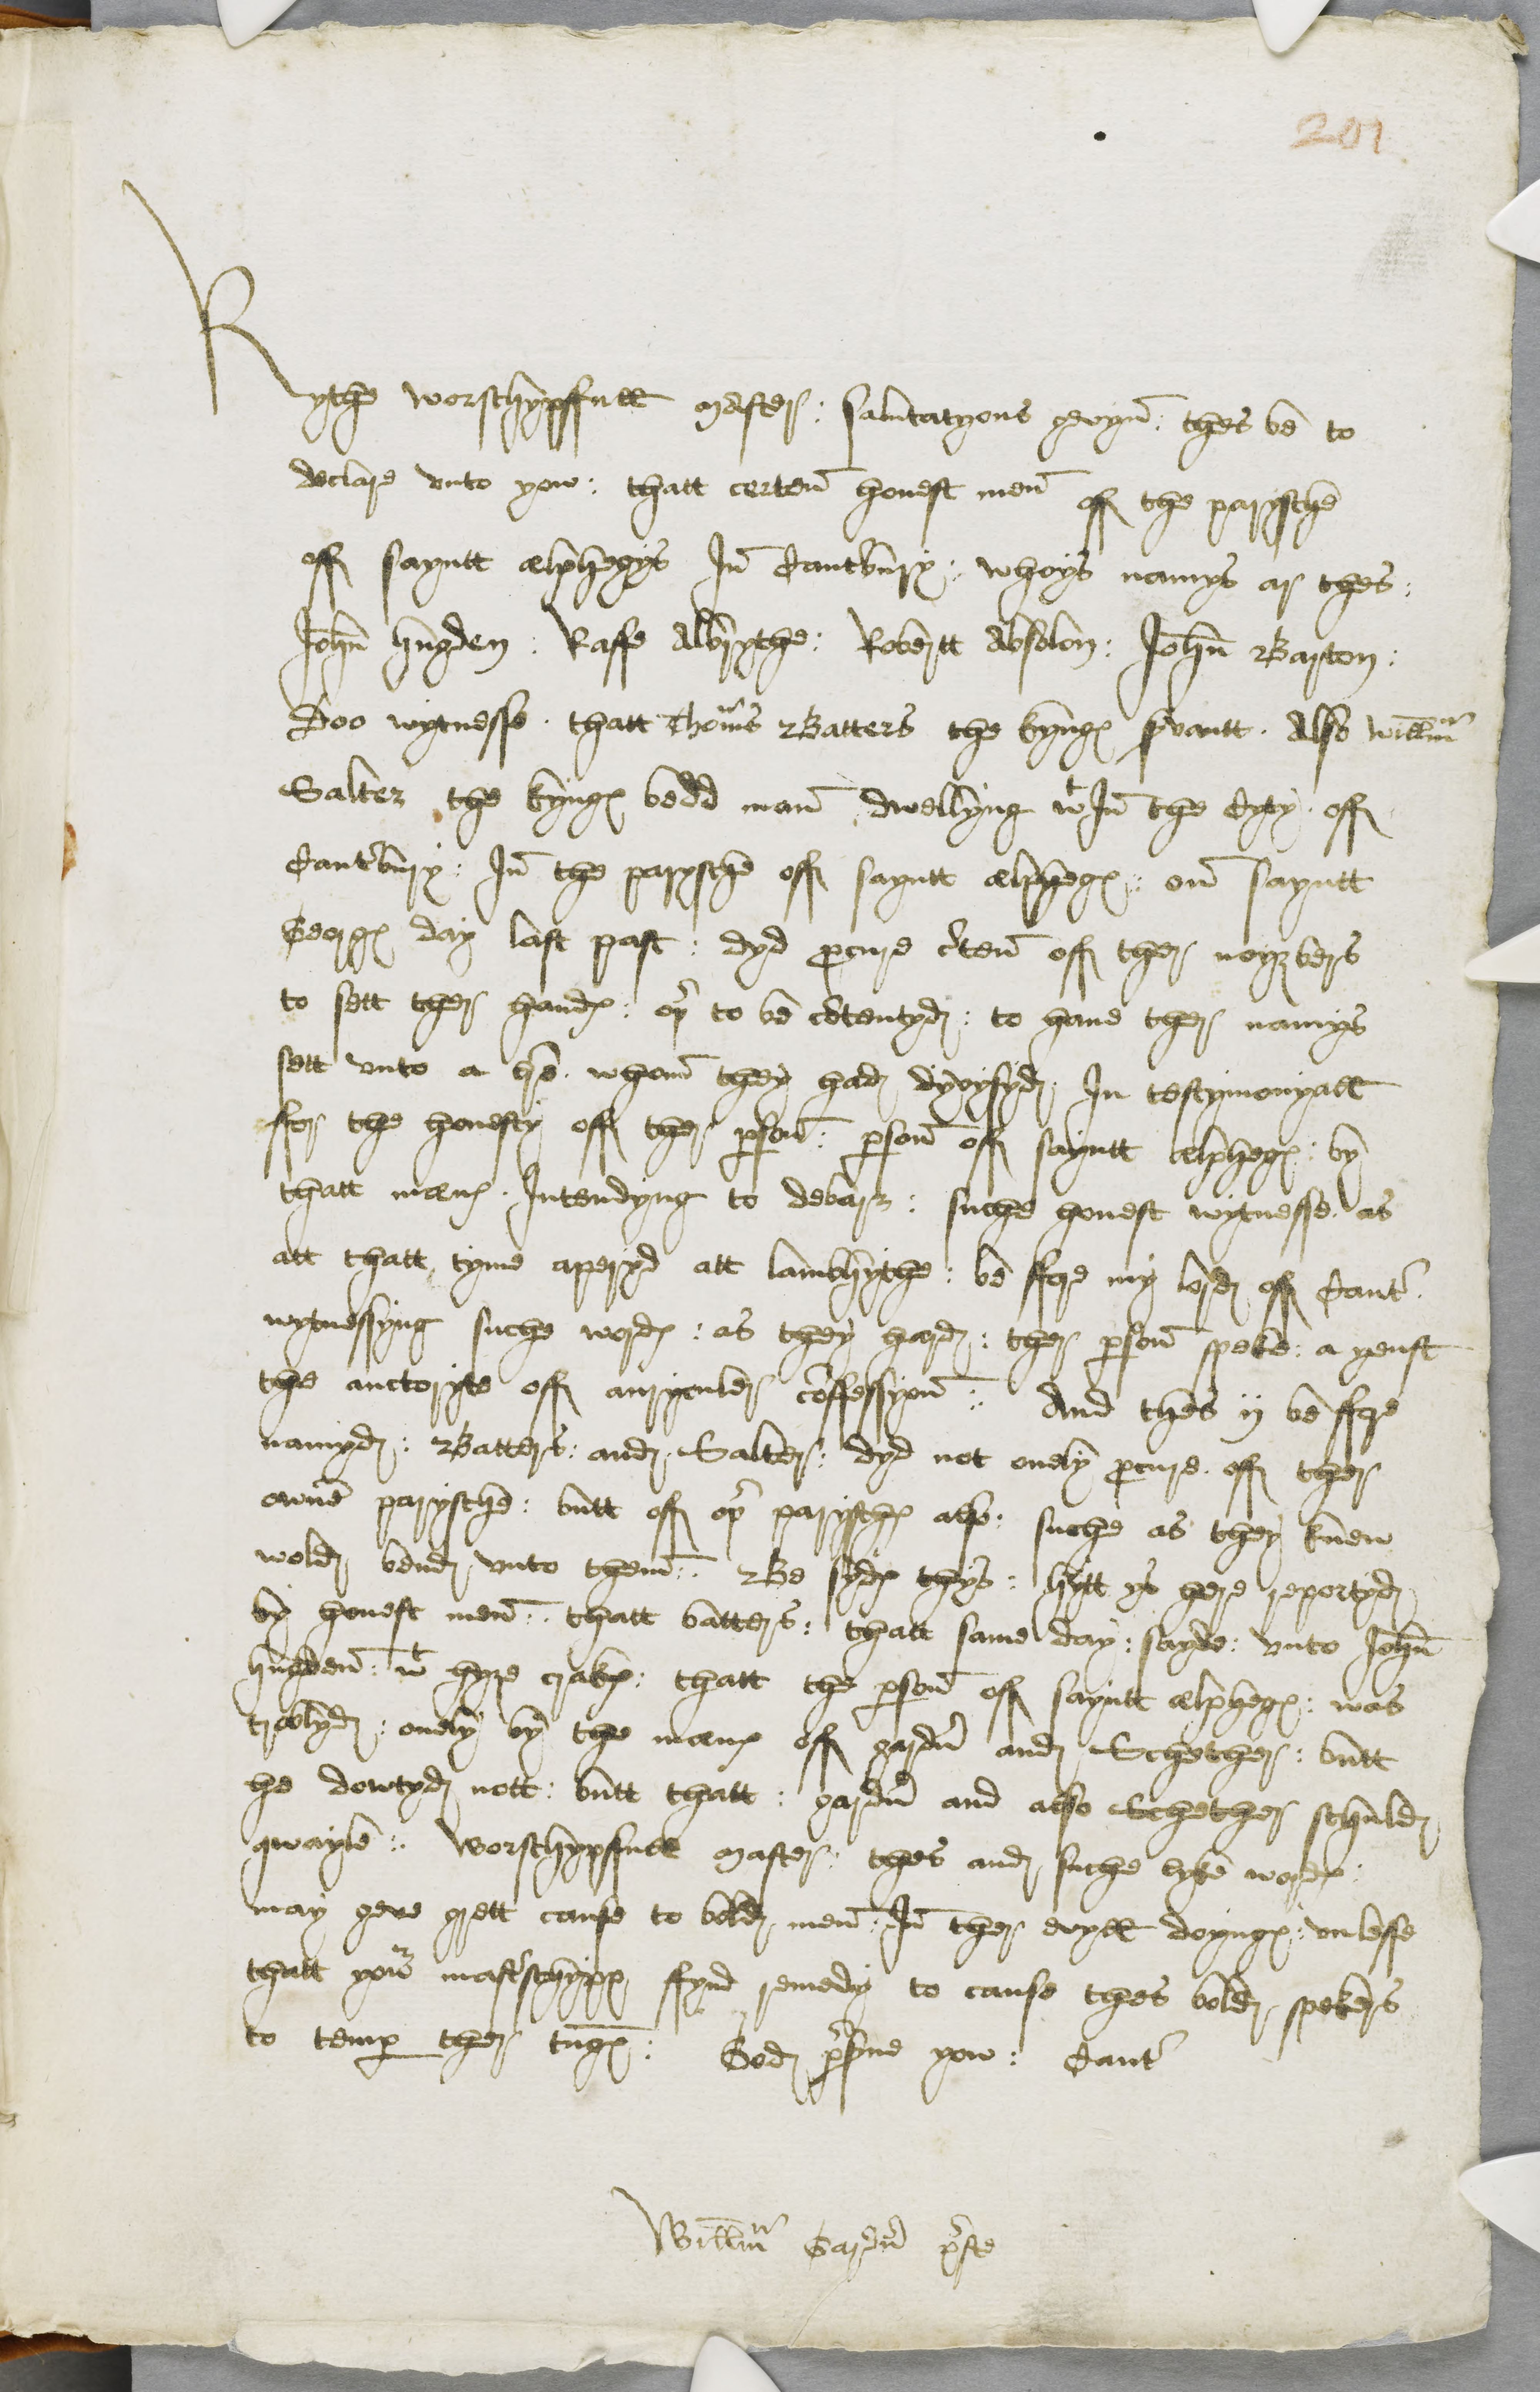 201
Rythe worschypffull Master : salutatyons gevyn : thes be to
declare vnto yow : thatt certen honest men off the parysche
off sayntt Alphegys In Cantbury : whoys namys ar thes :
John hugden : Raffe Albrythe : Robertt Absolon : John Barton :
Doo wytnesse . thatt Thoms Batters the kyngs svantt . Also Willm
Salter the kyngs bedd man dwellyng wt In the Cyty . off
Cantbury : In the parysche off sayntt alphegs : on sayntt
Georgs day last past : dyd pcure cten off ther neyzbers
to sett ther hands : or to be cotentyd : to have ther namys
sett vnto a bre . whom they had dyvysyd . In testymonyall
ffor the honesty off ther pson : pson off sayntt alphegs : by
thatt means . Intendyng to debarr : suche honest wytnesse . as
att thatt tyme aperyd att lambhythe : be ffore my lord off Cant .
wytnessyng suche words : as they hard : ther pson speke : a yenst
the auctoryte off auryculer coffessyon : And thes ij be ffore
namyd : Batters : and Salter : dyd not onely pcure . off ther
owne parysche : butt off or paryschs also : suche as they knew
wold bend vnto them : Be syds thys : hytt ys here reportyd
by honest men : thatt batters : thatt same day : sayde : vnto John
hugden : wt hyze craks : thatt the pson off sayntt alphegs : was
trobblyd : onely by the means off gardnr and Schether : butt
he dowtyd nott : butt thatt : gardnr and also Schether schuld
qwayle : Worschypffull Master : thes and suche lyke words :
may geve grett cause to bold men : In ther evyll doyngs : vnlesse
thatt your mastschypps ffynd remedy to cause thes bold spekers
to temp ther tungs : God psrve yow : Cant
Willm Gardnr prste